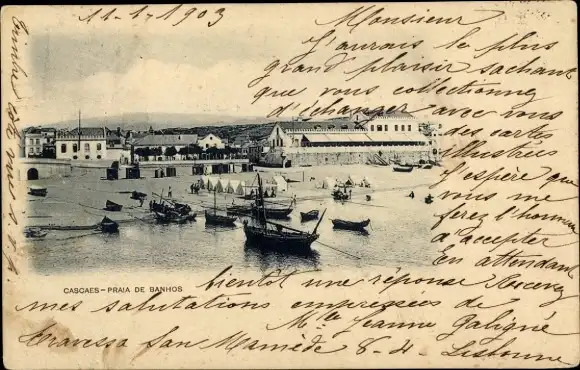 11-1-1903
Monsieur
J'aurais le plus
grand plaisir sachant
que vous collectionnez
d'échanger avec vous
des cartes
illustrées
J'espère que
vous me
ferez l'honneur
d'accepter
En attendant
bientôt une réponse Recevez
mes salutations empressées de
Mlle Jeanne Galigné
Travessa San Mamède 8-4 Lisbonne
CASCAES - PRAIA DE BANHOS
Timbre côté vue s.v.p.